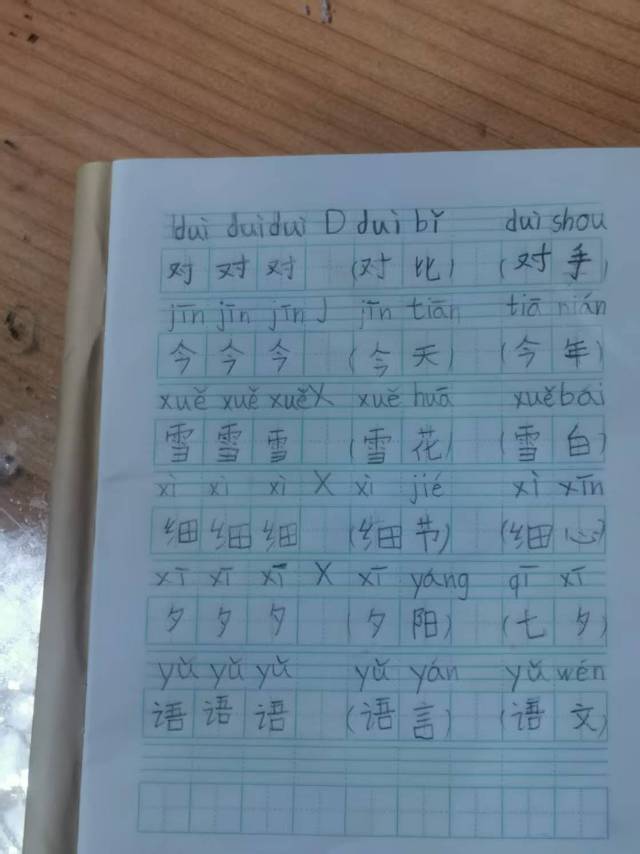 duì duì duì D duì bǐ duì shou
对 对 对 (对 比) (对 手)
jīn jīn jīn J jīn tiān tiā nián
今 今 今 (今 天) (今 年)
xuě xuě xuě X xuě huā xuě bái
雪 雪 雪 (雪 花) (雪 白)
xì xì xì X xì jié xì xīn
细 细 细 (细 节) (细 心)
xī xī xī X xī yáng qī xī
夕 夕 夕 (夕 阳) (七 夕)
yǔ yǔ yǔ yǔ yán yǔ wén
语 语 语 (语 言) (语 文)